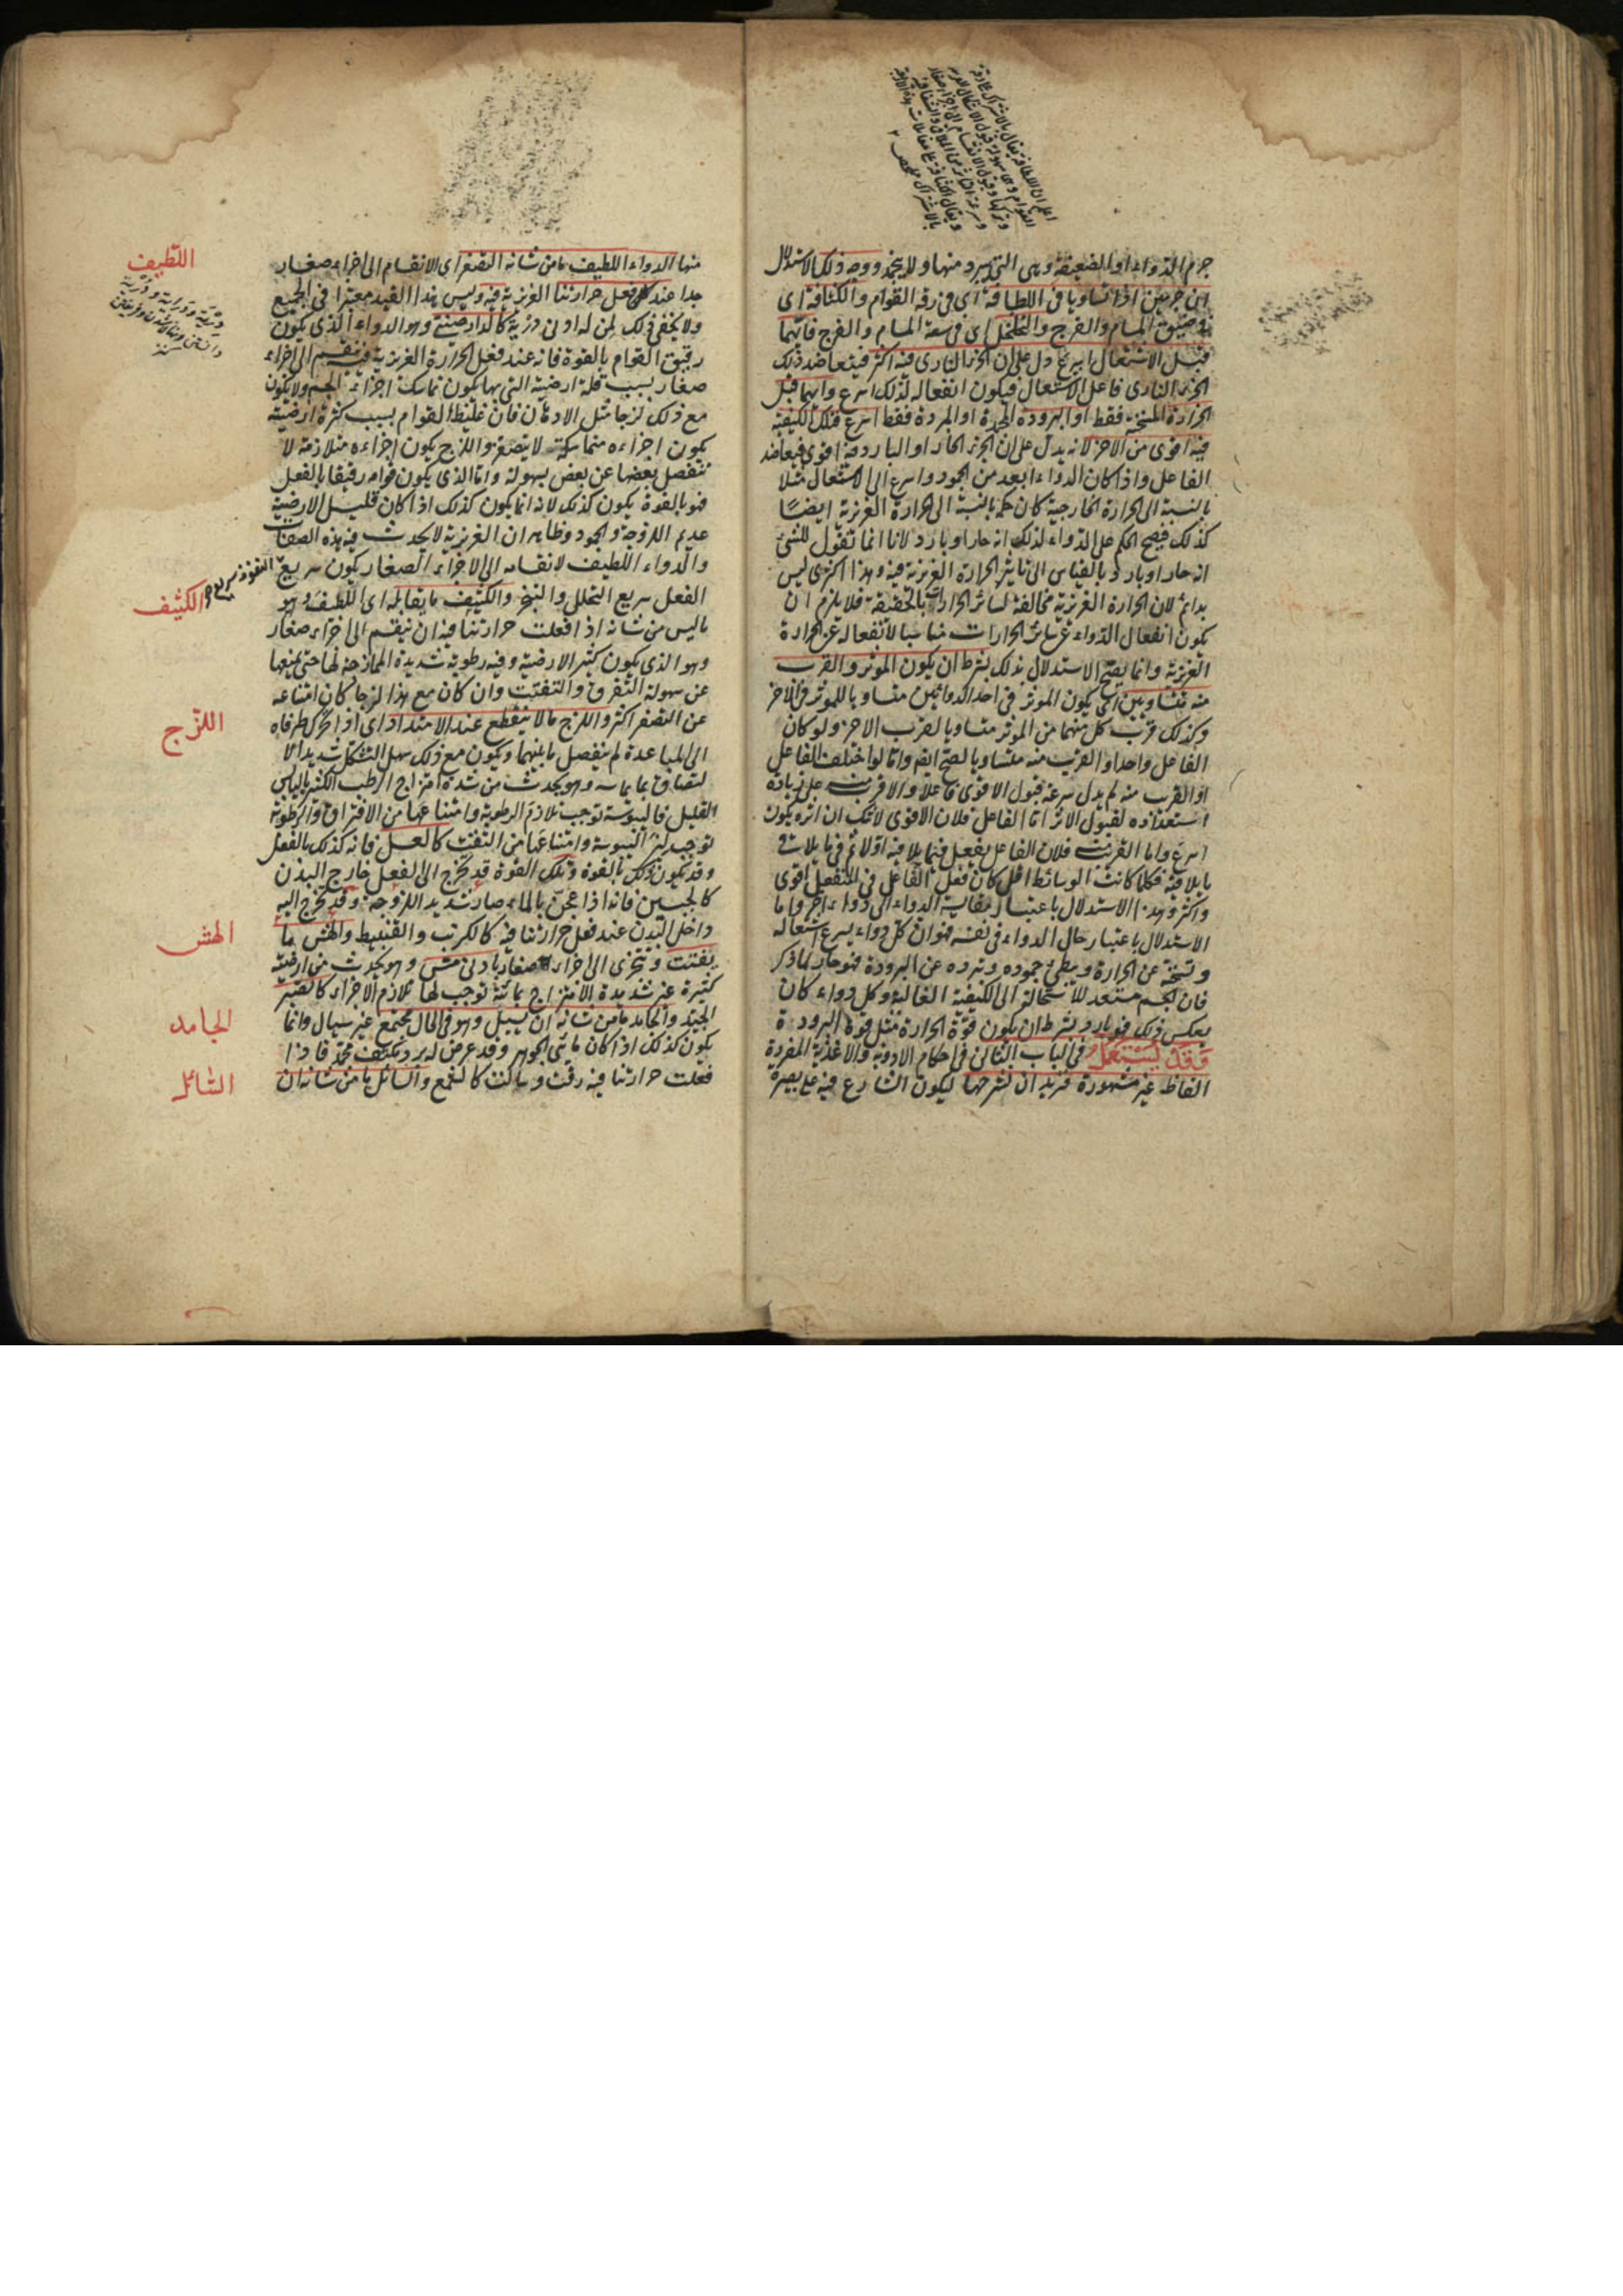 اعلم ان اللطافة يقال بالاشتراك على رقة
القوام وهى سهولة قبول الاشكال الغريبة
وتركها وقبول الانقسام الى اجزاء صغار
وسرعة التاثر عن الملاقى والشفافية
ويقال الكثافة على مقابلات هذه الاربعة
بالاشتراك
جرم الدواء او الضعيفة وهى التى يبرد منها ولا يجمد ووجه ذلك الاستدلال
ان جرمين اذا تساويا فى اللطافة اى فى رقة القوام والكثافة اى
فى ضيق المسام والفرج والتخلخل اى فى سعة المسام والفرج فايهما
قبل الاشتعال اسرع دل على ان الجزء النارى فيه اكثر فيتعاضد ذلك
الجزء النارى فاعل الاشتعال فيكون انفعاله لذلك اسرع وايهما قبل
الحرارة المسخنة فقط او البرودة المجمدة او المبردة فقط اسرع فتلك الكيفية
فيه اقوى من الاخر لانه يدل على ان الجزء الحار او البارد فيه اقوى فيعاضد
الفاعل واذا كان الدواء ابعد من الجمود واسرع الى الاشتعال مثلا
بالنسبة الى الحرارة الخارجية كان حكمه بالنسبة الى الحرارة الغريزية ايضًا
كذلك فيصح الحكم على الدواء لذلك انه حار او بارد لانا انما نقول للشئ
انه حار او بارد بالقياس الى تاثير الحرارة الغريزية فيه وهذا اكثرى ليس
بدائم لان الحرارة الغريزية مخالفة لسائر الحرارات بالحقيقة فلا يلزم ان
يكون انفعال الدواء عن سائر الحرارات مناسبا لانفعاله عن الحرارة
الغريزية وانما يصح الاستدلال بذلك بشرط ان يكون الموثر والقرب
منه متساويين اى يكون الموثر فى احد الدوائين مساويا للموثر فى الاخر
وكذلك قرب كل منهما من الموثر مساويا لقرب الاخر ولو كان
الفاعل واحدا والقرب منه متساويا لصح ايضا واما لو اختلف الفاعل
او القرب منه لم يدل سرعة قبول الاقوى فاعلا والاقرب على زيادة
استعداده لقبول الاثر اما الفاعل فلان الاقوى لا شك ان اثره يكون
اسرع واما القرب فلان الفاعل يفعل فيما يلاقيه اولا ثم فيما يلاقى
ما يلاقيه فكلما كانت الوسائط اقل كان فعل الفاعل فى المنفعل اقوى
واكثر وهذا الاستدلال باعتبار مقايسة الدواء الى دواء اخر واما
الاستدلال باعتبار حال الدواء فى نفسه فهو ان كل دواء يسرع اشتعاله
وتسخنه عن الحرارة ويبطئ جموده وتبرده عن البرودة فهو حار لما ذكر
فان الجسم مستعد للاستحالة الى الكيفية الغالبة وكل دواء كان
بعكس ذلك فهو بارد بشرط ان يكون قوة الحرارة مثل قوة البرودة
وَقَدْ يُسْتَعْمَلُ فى الباب الثانى فى احكام الادوية والاغذية المفردة
الفاظ غير مشهورة فنريد ان نشرحها ليكون الشارع فيه على بصيرة
منها الدواء اللطيف ما من شانه التصغر اى الانقسام الى اجزاء صغار
جدا عند فعل حرارتنا الغريزية فيه وليس هذا القيد معتبرا فى الجميع
ولا يخفى ذلك لمن له ادنى درية كالدارصينى وهو الدواء الذى يكون
رقيق القوام بالقوة فانه عند فعل الحرارة الغريزية فيه ينقسم الى اجزاء
صغار بسبب قلة ارضيته التى بها يكون تماسك اجزاء الجسم ولا يكون
مع ذلك لزجا مثل الادهان فان غليظ القوام بسبب كثرة ارضيته
يكون اجزاءه متماسكة لا يتصغر واللزج يكون اجزاءه متلازمة لا
تنفصل بعضها عن بعض بسهولة واما الذى يكون قوامه رقيقا بالفعل
فهو بالقوة يكون كذلك لانه انما يكون كذلك اذا كان قليل الارضية
عديم اللزوجة والجمود وظاهر ان الغريزية لا يحدث فيه هذه الصفات
والدواء اللطيف لانقسامه الى الاجزاء الصغار يكون سريع النفوذ سريع
الفعل سريع التحلل والتبخر والكثيف ما يقابله اى اللطيف وهو
ما ليس من شانه اذا فعلت حرارتنا فيه ان ينقسم الى اجزاء صغار
وهو الذى يكون كثير الارضية وفيه رطوبة شديدة الممازجة لها حتى يمنعها
عن سهولة التفرق والتفتت وان كان مع هذا لزجا كان امتناعه
عن التصغر اكثر واللزج ما لا ينقطع عند الامتداد اى اذا تحرك طرفاه
الى المباعدة لم ينفصل ما بينهما ويكون مع ذلك سهل التشكل شديد الا
لتصاق بما يماسه وهو يحدث من شدة امتزاج الرطب الكثير باليابس
القليل فاليبوسة توجب تلازم الرطوبة وامتناعها من الافتراق والرطوبة
توجب لين اليبوسة وامتناعها من التفتت كالعسل فانه كذلك بالفعل
وقد يكون ذلك بالقوة وتلك القوة قد تخرج الى الفعل خارج البدن
كالجبسين فانه اذا عجن بالماء صار شديد اللزوجة وقد تخرج اليه
داخل البدن عند فعل حرارتنا فيه كالكرنب والقنبيط والهش ما
يتفتت ويتجزى الى اجزاء صغار بادنى مس وهو يحدث من ارضية
كثيرة غير شديدة الامتزاج بمائية توجب لها تلازم الاجزاء كالصبر
الجيد والجامد ما من شانه ان يسيل وهو فى الحال مجتمع غير سيال وانما
يكون كذلك اذا كان مائى الجوهر وقد عرض له برد مكثف مجمد فاذا
فعلت حرارتنا فيه رقت وسالت كالشمع والسائل ما من شانه ان
اللطيف
الكثيف
اللزج
الهش
الجامد
السائل